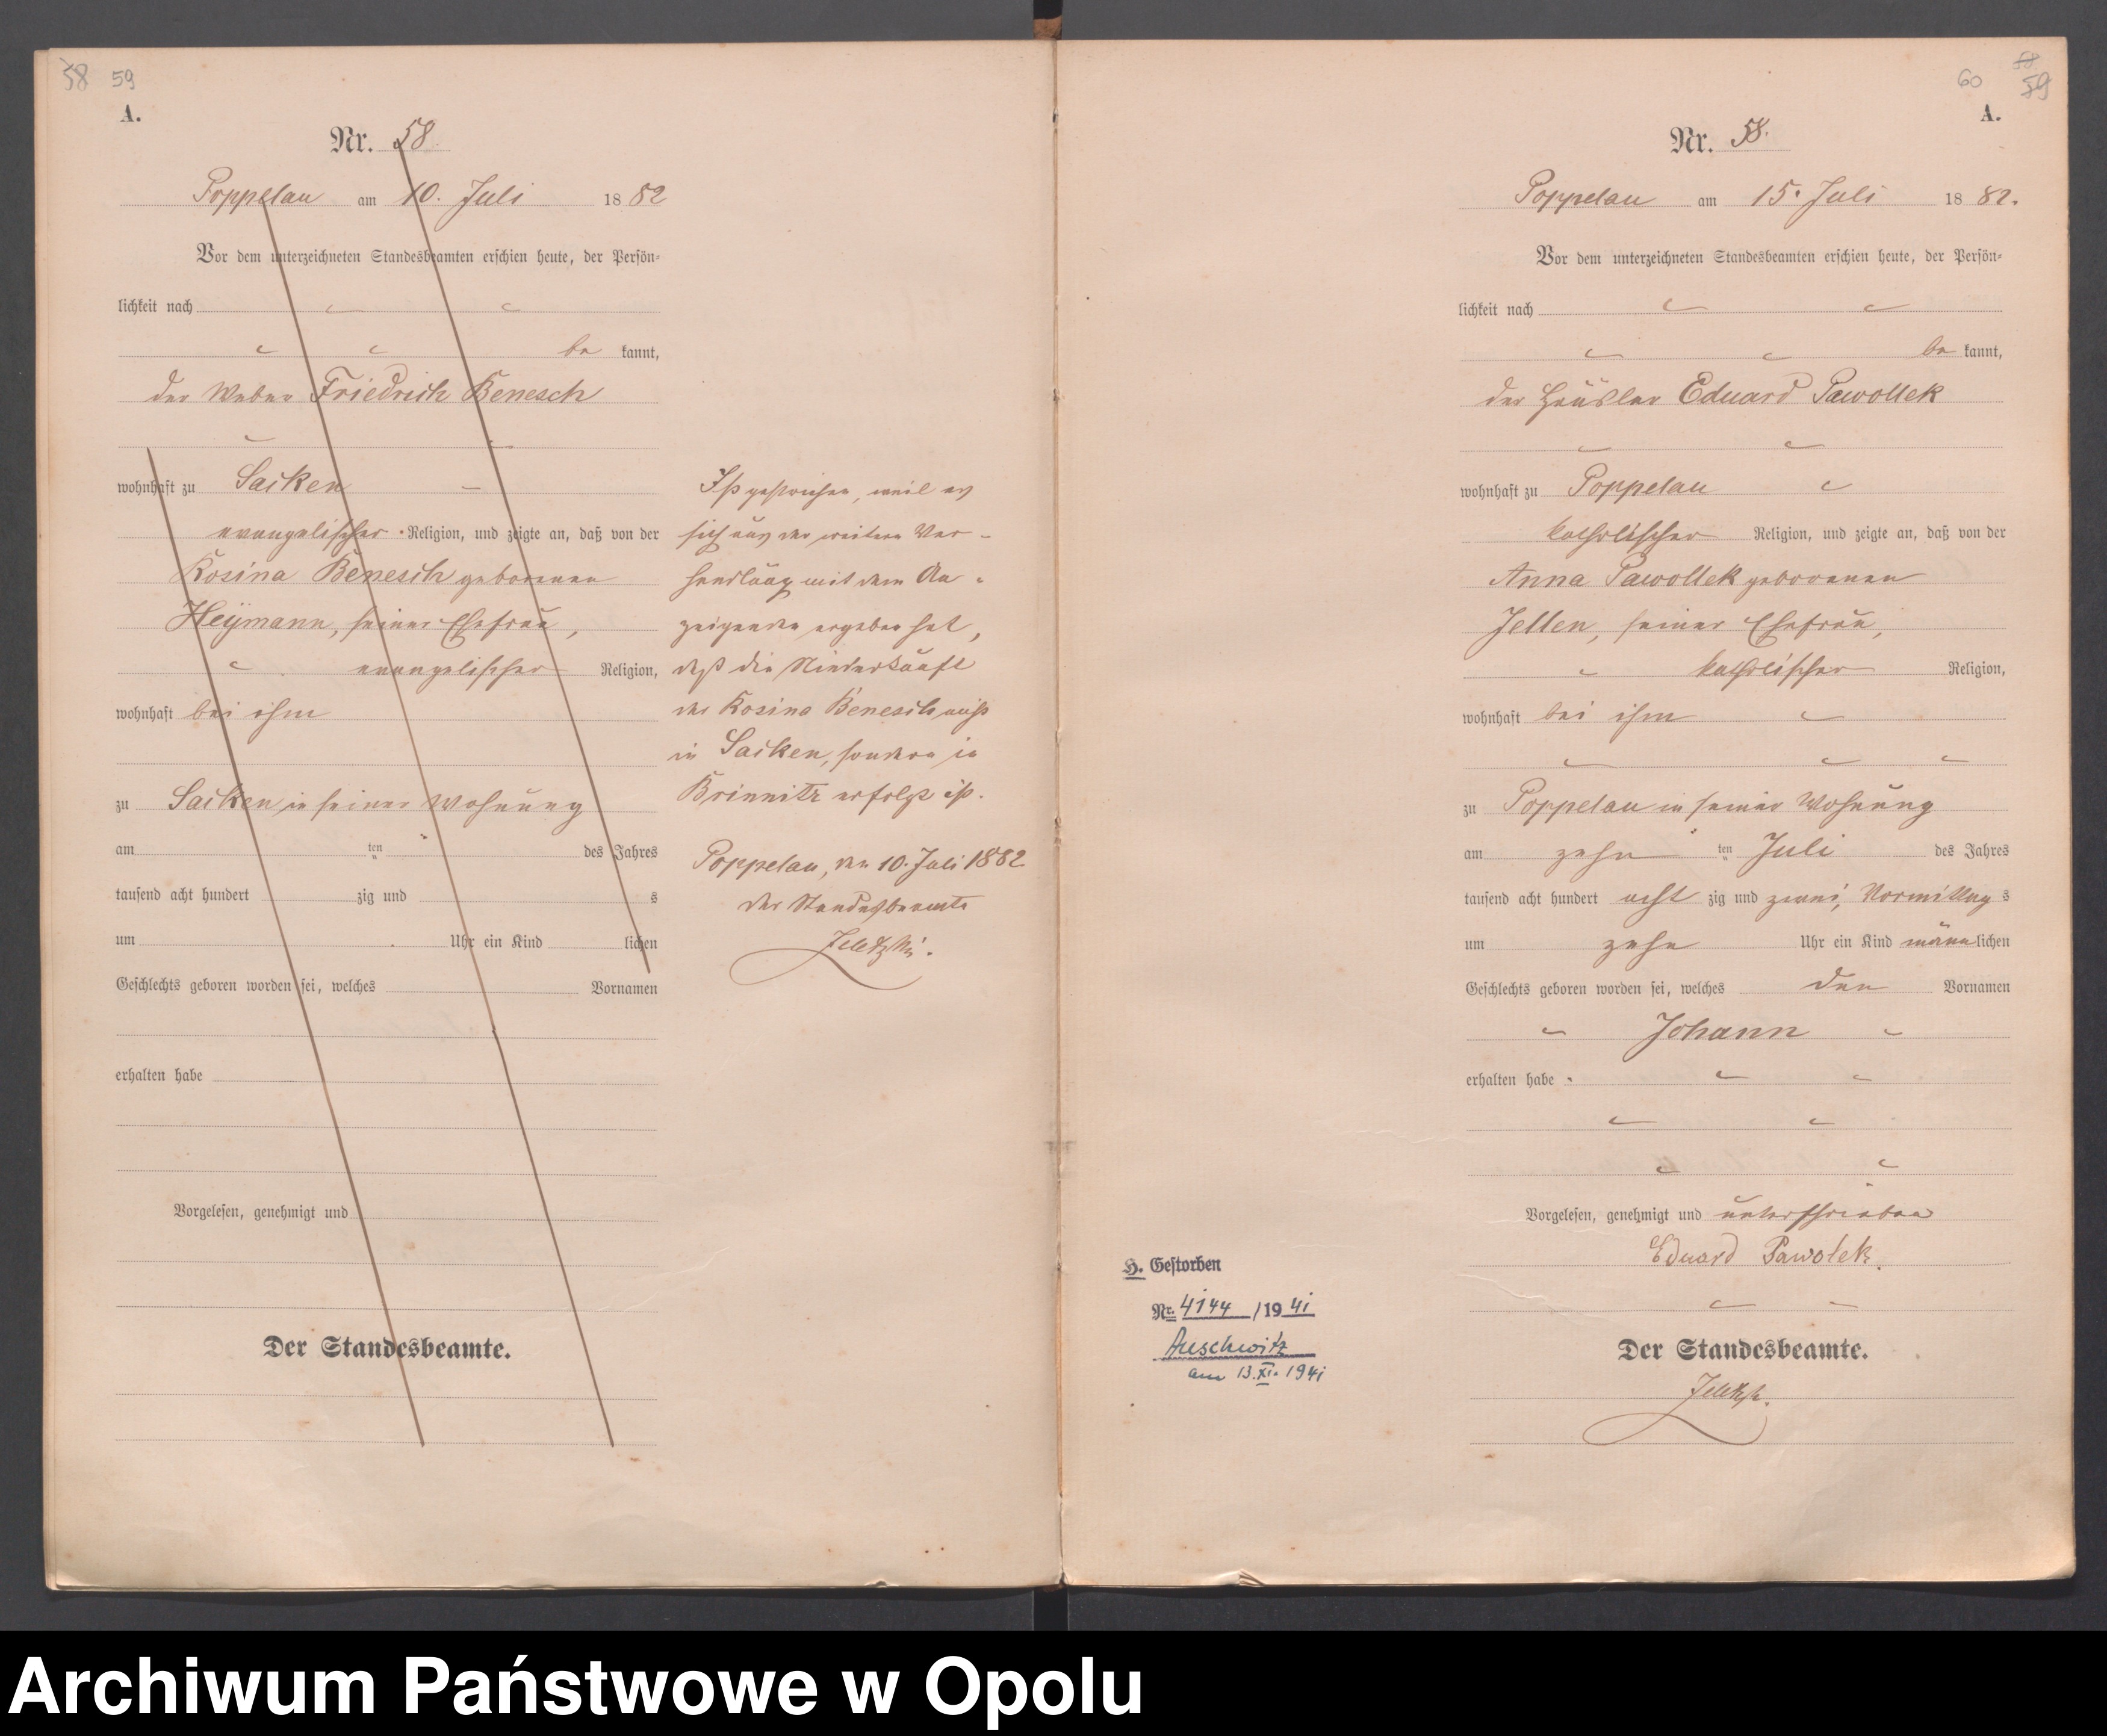 58 59
A.
Nr. 58.
Poppelau am 10. Juli 1882
Vor dem unterzeichneten Standesbeamten erschien heute, der Persön-
lichkeit nach
be kannt,
der Weber Friedrich Benesch
wohnhaft zu Sacken
evangelischer Religion, und zeigte an, daß von der
Rosina Benesch geborenen
Heymann, seiner Ehefrau,
evangelischer Religion,
wohnhaft bei ihm
zu Sacken in seiner Wohnung
am ten des Jahres
tausend acht hundert zig und s
um Uhr ein Kind lichen
Geschlechts geboren worden sei, welches Vornamen
erhalten habe
Vorgelesen, genehmigt und
Der Standesbeamte.
Ist gestrichen, weil es
sich aus der weitern Ver-
handlung mit dem An-
zeigenden ergeben hat,
daß die Niederkunft
der Rosina Benesch nicht
in Sacken, sondern in
Brinnitz erfolgt ist.
Poppelau, den 10. Juli 1882
Der Standesbeamte
60 58 59
A.
Nr. 58.
Poppelau am 15. Juli 1882.
Vor dem unterzeichneten Standesbeamten erschien heute, der Persön-
lichkeit nach
be kannt,
der Häusler Eduard Pawollek
wohnhaft zu Poppelau
katholischer Religion, und zeigte an, daß von der
Anna Pawollek geborenen
Jellen, seiner Ehefrau,
katholischer Religion,
wohnhaft bei ihm
zu Poppelau in seiner Wohnung
am zehn ten Juli des Jahres
tausend acht hundert acht zig und zwei, Vormittag s
um zehn Uhr ein Kind männlichen
Geschlechts geboren worden sei, welches den Vornamen
Johann
erhalten habe.
Vorgelesen, genehmigt und unterschrieben
Eduard Pawolek.
Der Standesbeamte.
H. Gestorben
Nr. 4144 /1941
Auschwitz
am 13.XI.1941
Archiwum Państwowe w Opolu